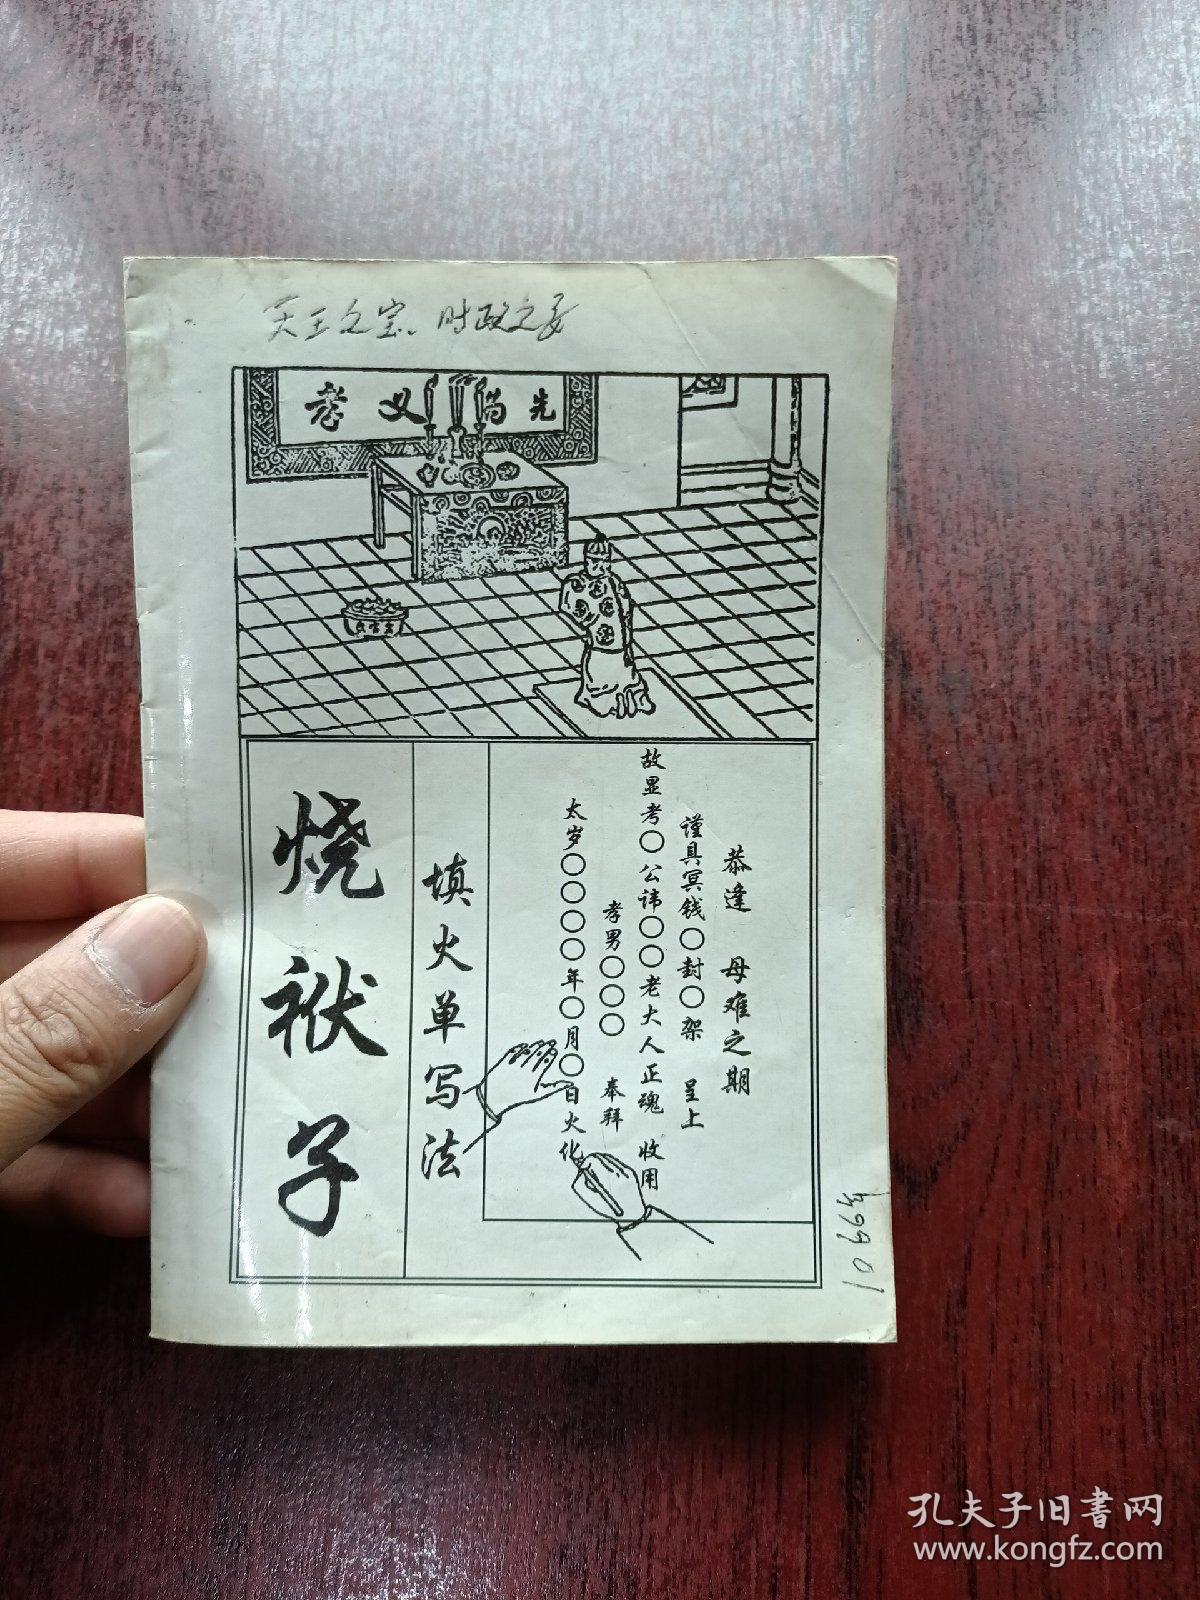 天王之宝、时政之
先为义孝
烧袱子
填火单写法
恭逢 母难之期
谨具冥钱〇封〇架 呈上
故显考〇公讳〇〇老大人正魂 收用
孝男〇〇〇 奉拜
太岁〇〇〇〇年〇月〇日火化
孔夫子旧書网
www.kongfz.com